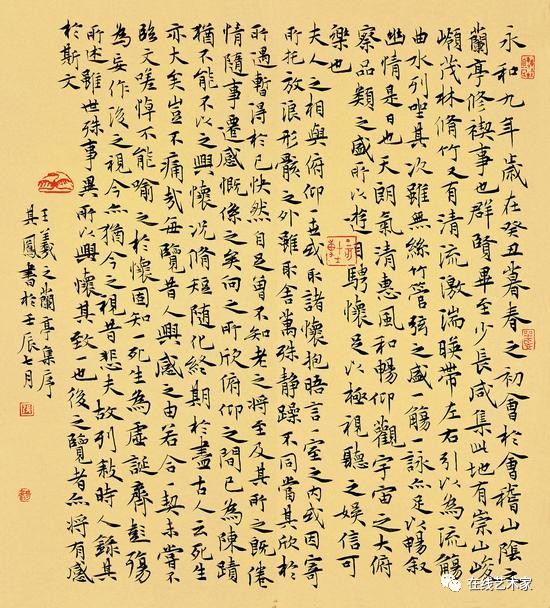 永和九年歲在癸丑暮春之初會於會稽山陰之
蘭亭修禊事也群賢畢至少長咸集此地有崇山峻
嶺茂林脩竹又有清流激湍暎帶左右引以為流觴
曲水列坐其次雖無絲竹管弦之盛一觴一詠亦足以暢敘
幽情是日也天朗氣清惠風和暢仰觀宇宙之大俯
察品類之盛所以遊目騁懷足以極視聽之娛信可
樂也
夫人之相與俯仰一世或取諸懷抱晤言一室之內或因寄
所託放浪形骸之外雖取舍萬殊靜躁不同當其欣於
所遇暫得於己快然自足曾不知老之將至及其所之既倦
情隨事遷感慨係之矣向之所欣俯仰之間已為陳蹟
猶不能不以之興懷況脩短隨化終期於盡古人云死生
亦大矣豈不痛哉每覽昔人興感之由若合一契未嘗不
臨文嗟悼不能喻之於懷固知一死生為虛誕齊彭殤
為妄作後之視今亦猶今之視昔悲夫故列敘時人錄其
所述雖世殊事異所以興懷其致一也後之覽者亦將有感
於斯文
王羲之蘭亭集序
其鳳書於壬辰七月
在线艺术家